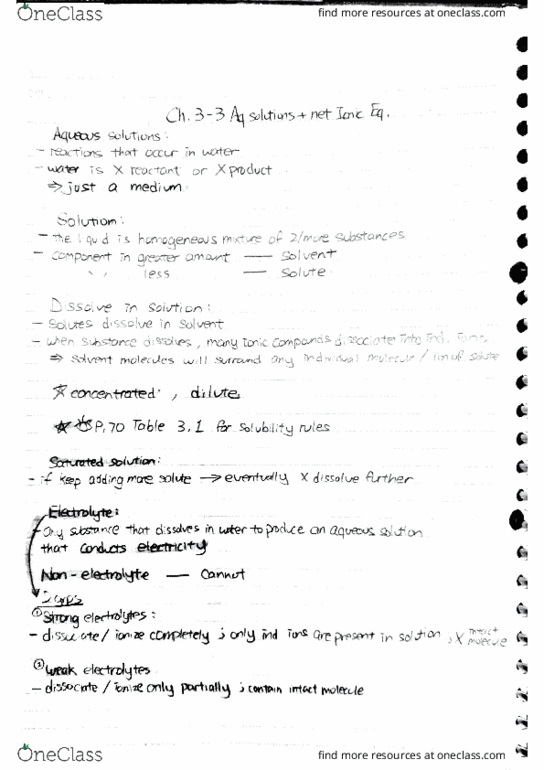 OneClass
find more resources at oneclass.com
Ch. 3-3 Aq solutions + net Ionic Eq.
Aqueous solutions:
- reactions that occur in water
- water is X reactant or X product
⇒ just a medium
Solution:
- The liquid is homogeneous mixture of 2/more substances
- component in greater amount — Solvent
" less — Solute
Dissolve in solution:
- Solutes dissolve in solvent
- when substance dissolves, many Ionic compounds dissociate into Ind. Ions.
⇒ solvent molecules will surround any individual molecule / ion of solute
☆ concentrated, dilute
☆ P.70 Table 3.1 for solubility rules
Saturated solution:
- if keep adding more solute → eventually X dissolve further
Electrolyte:
- Any substance that dissolves in water to produce an aqueous solution
that conducts electricity
Non-electrolyte — Cannot
① Strong electrolytes:
- dissociate / ionize completely ; only ind ions are present in solution, X intact molecule
② weak electrolytes
- dissociate / ionize only partially ; contain intact molecule
OneClass
find more resources at oneclass.com